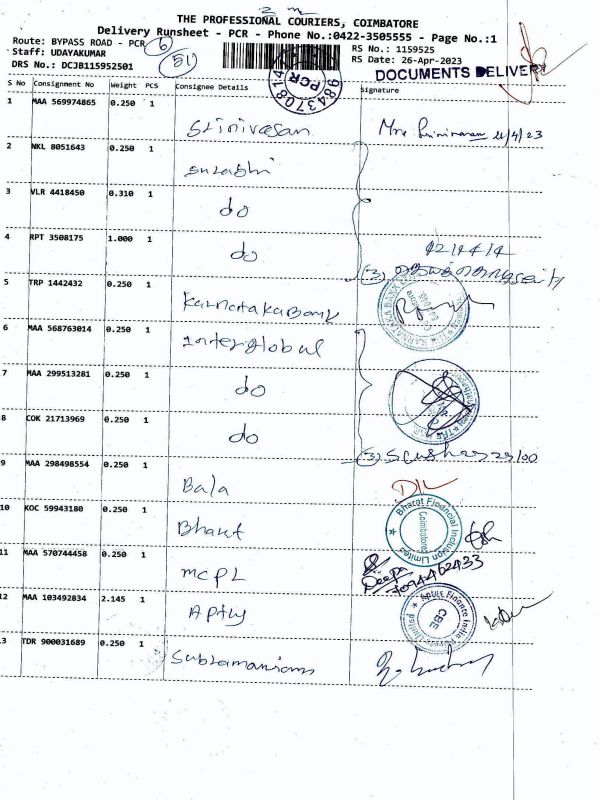 THE PROFESSIONAL COURIERS, COIMBATORE
Delivery Runsheet - PCR - Phone No.:0422-3505555 - Page No.:1
Route: BYPASS ROAD - PCR 6
RS No.: 1159525
Staff: UDAYAKUMAR
RS Date: 26-Apr-2023
DRS No.: DCJB115952501
51
PCR
DOCUMENTS DELIVERY
S No Consignment No Weight PCS Consignee Details Signature
1 MAA 569974865 0.250 1
Srinivasan
2 NKL 8051643 0.250 1
3 VLR 4418450 0.310 1
do
4 RPT 3508175 1.000 1
do
(3)
5 TRP 1442432 0.250 1
Karnataka Bank
6 MAA 568763014 0.250 1
Interglobal
7 MAA 299513281 0.250 1
do
8 COK 21713969 0.250 1
do
(3)
9 MAA 298498554 0.250 1
Bala
10 KOC 59943180 0.250 1
Bharat
Bharat Financial Inclusion Limited
Coimbatore
11 MAA 570744458 0.250 1
MCPL
Deepa
12 MAA 103492834 2.145 1
Aptly
CBE
13 TDR 900031689 0.250 1
Subramaniam